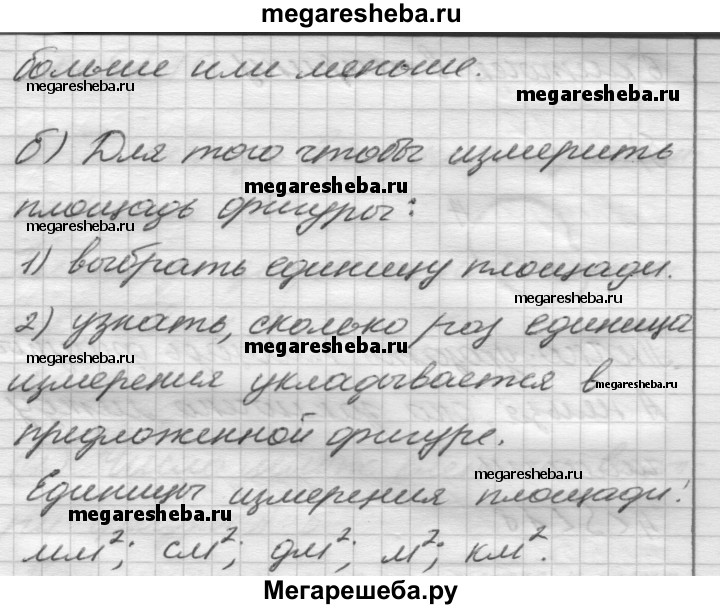 megaresheba.ru
больше или меньше.
megaresheba.ru
megaresheba.ru
б) Для того чтобы измерить
megaresheba.ru
площадь фигуры:
megaresheba.ru
1) выбрать единицу площади.
megaresheba.ru
2) узнать, сколько раз единица
megaresheba.ru
megaresheba.ru
измерения укладывается в
megaresheba.ru
предложенной фигуре.
megaresheba.ru
Единицы измерения площади:
megaresheba.ru
мм²; см²; дм²; м²; км².
Мегарешеба.ру